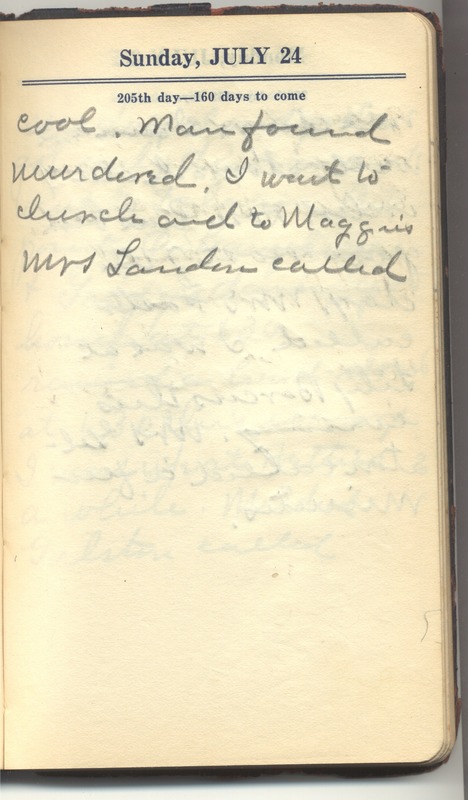 Sunday, JULY 24
205th day—160 days to come
cool. Man found
murdered. I went to
church and to Maggies
Mrs Landen called